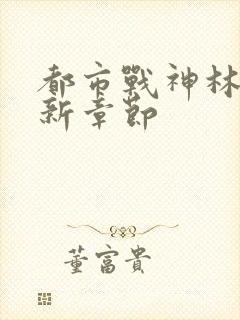 都市戰神林
新章節
董富貴